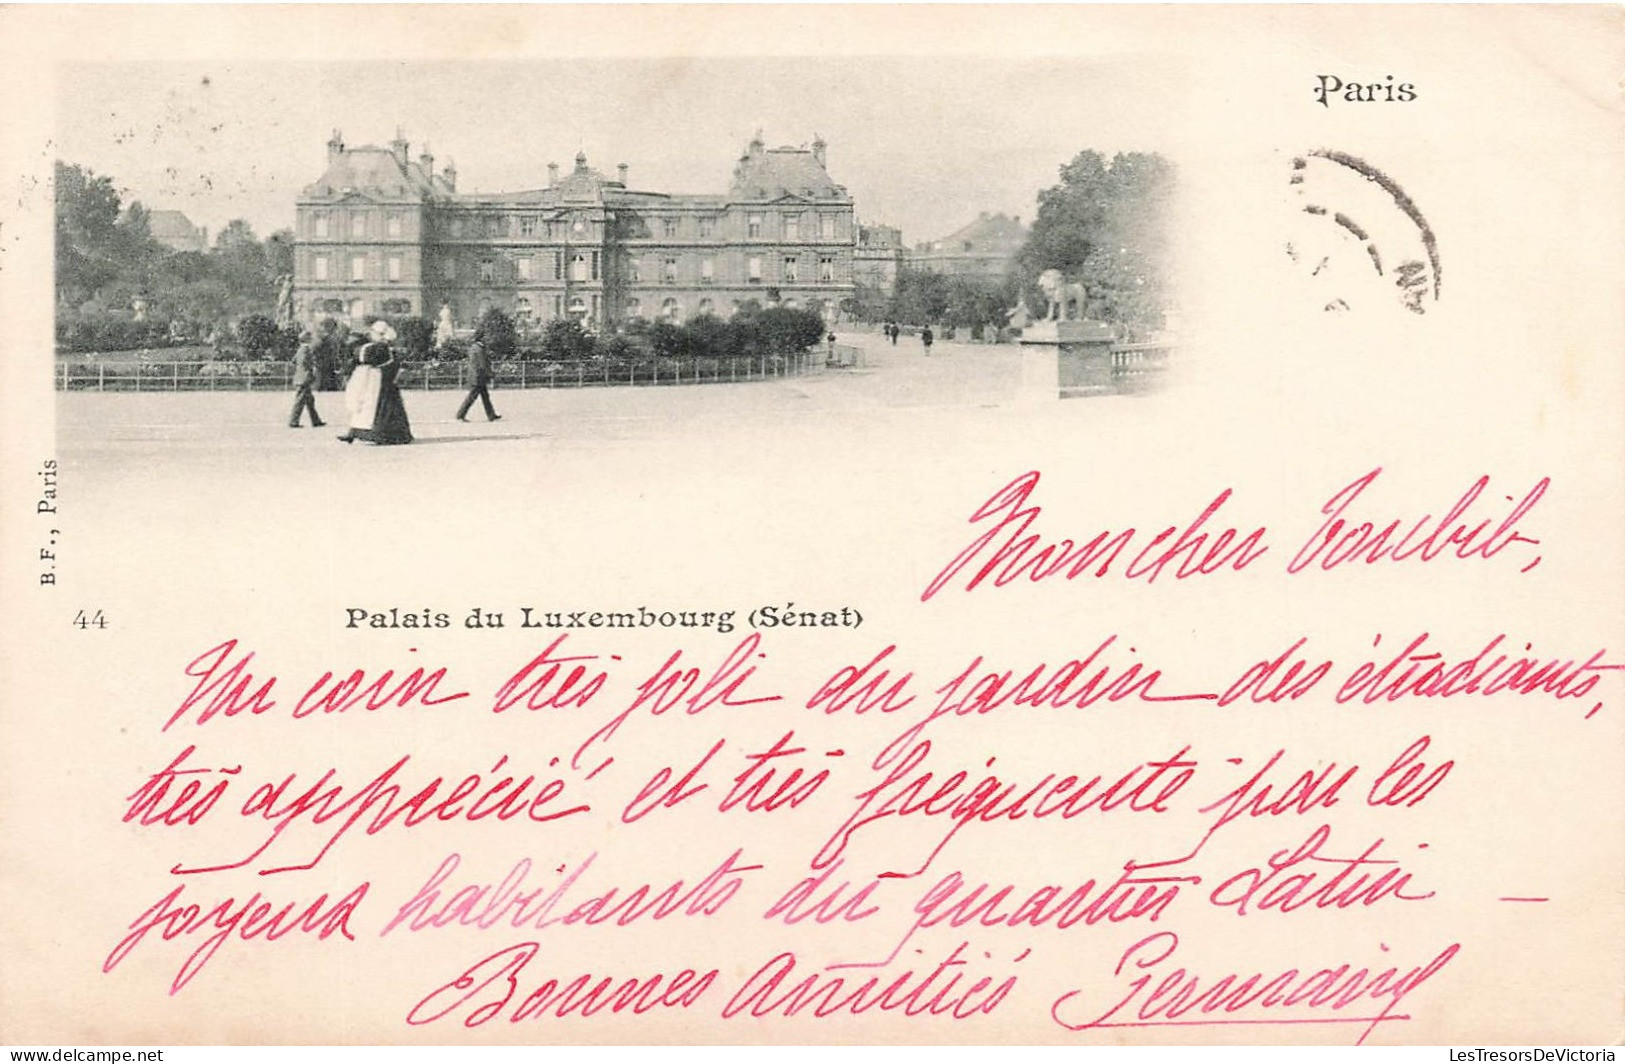 Paris
B.F., Paris
44
Palais du Luxembourg (Sénat)
Mon cher Toubib,
Un coin très joli du jardin des étudiants,
très apprécié et très fréquenté par les
joyeux habitants du quartier Latin –
Bonnes Amitiés Germain
LesTresorsDeVictoria